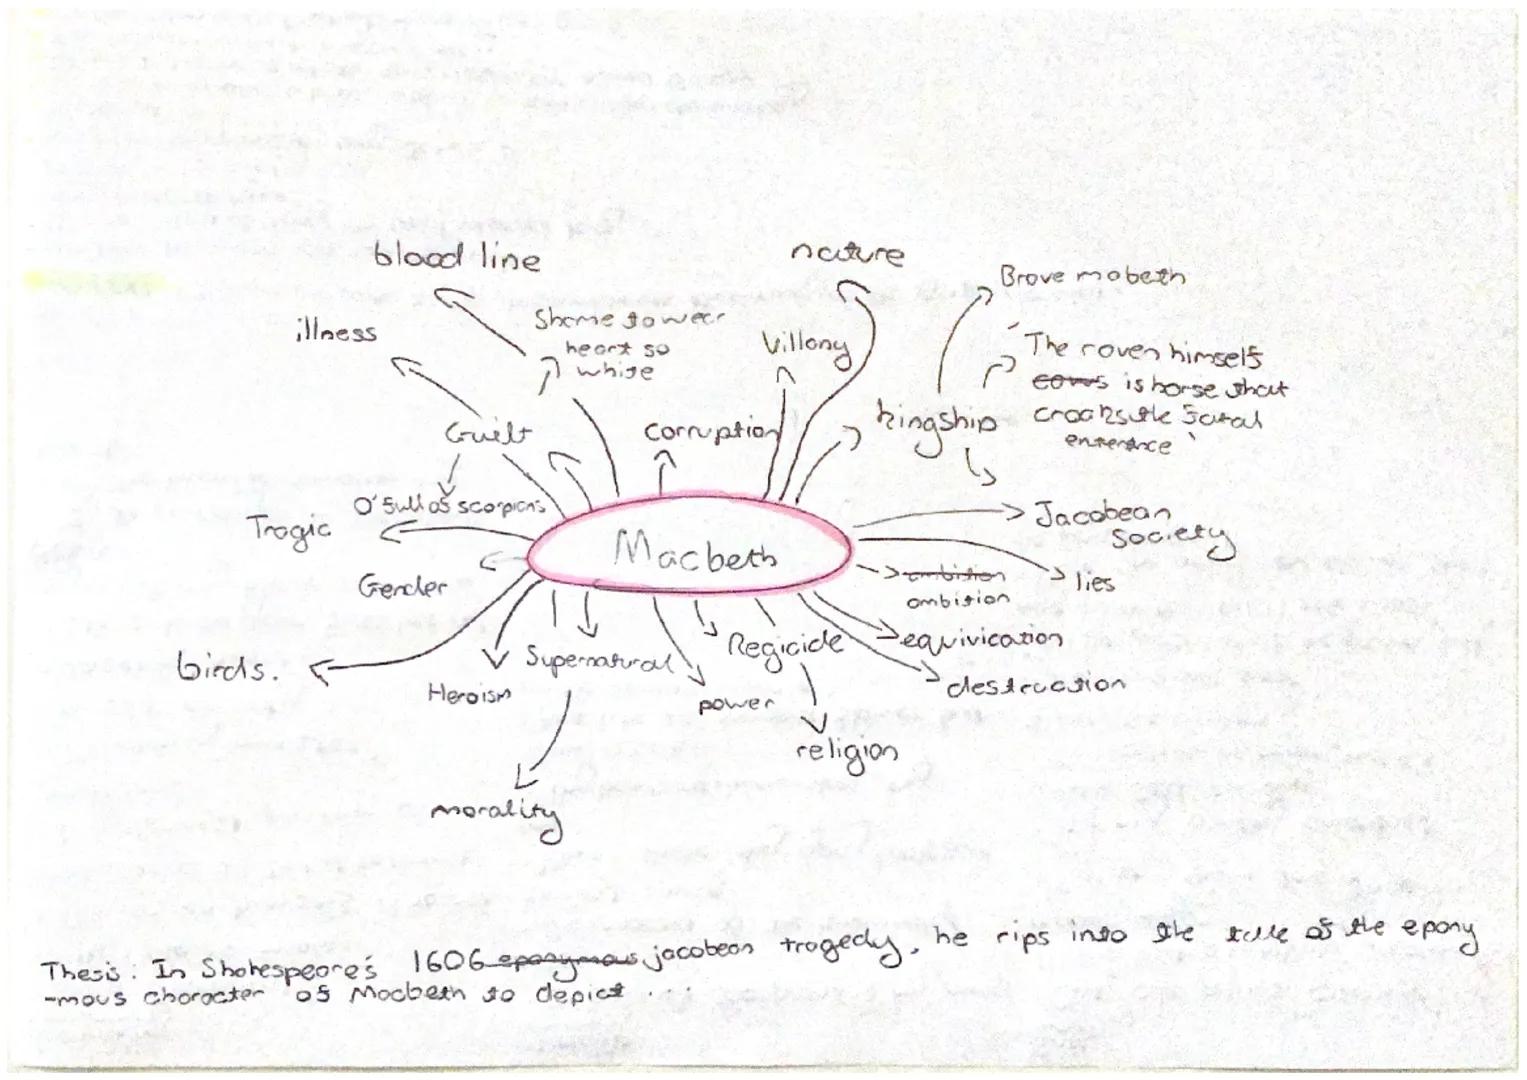 blood line
nature
Brave mabeth
illness
Shame to wear
heart so
white
Villany
The raven himself
is horse that
croaks the fatal
enterance
Guilt
corruption
kingship
O' full of scorpions
Tragic
Jacobean
Society
Macbeth
Gender
ambition
ambition
lies
birds.
Heroism
Supernatural
Regicide
equivication
power
destruction
religion
morality
Thesis : In Shakespeare's 1606 eponymous jacobean tragedy, he rips into the tale of the epony
-mous character of Macbeth to depict ...